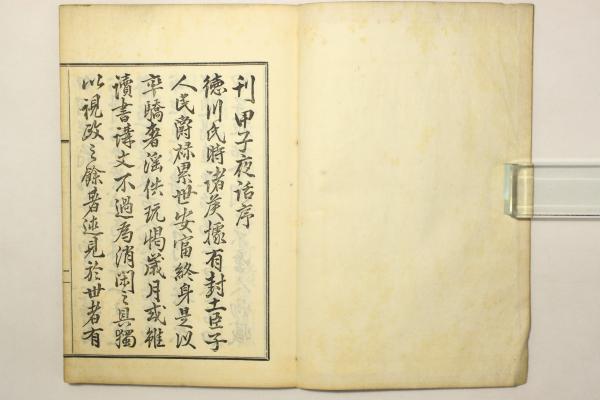 刊甲子夜話序
徳川氏時諸矦據有封土臣子
人民爵禄累世安富終身是以
率驕奢滛佚玩愒歳月或雖
讀書講文不過為消閑之具獨
以視政之餘著述見於世者有